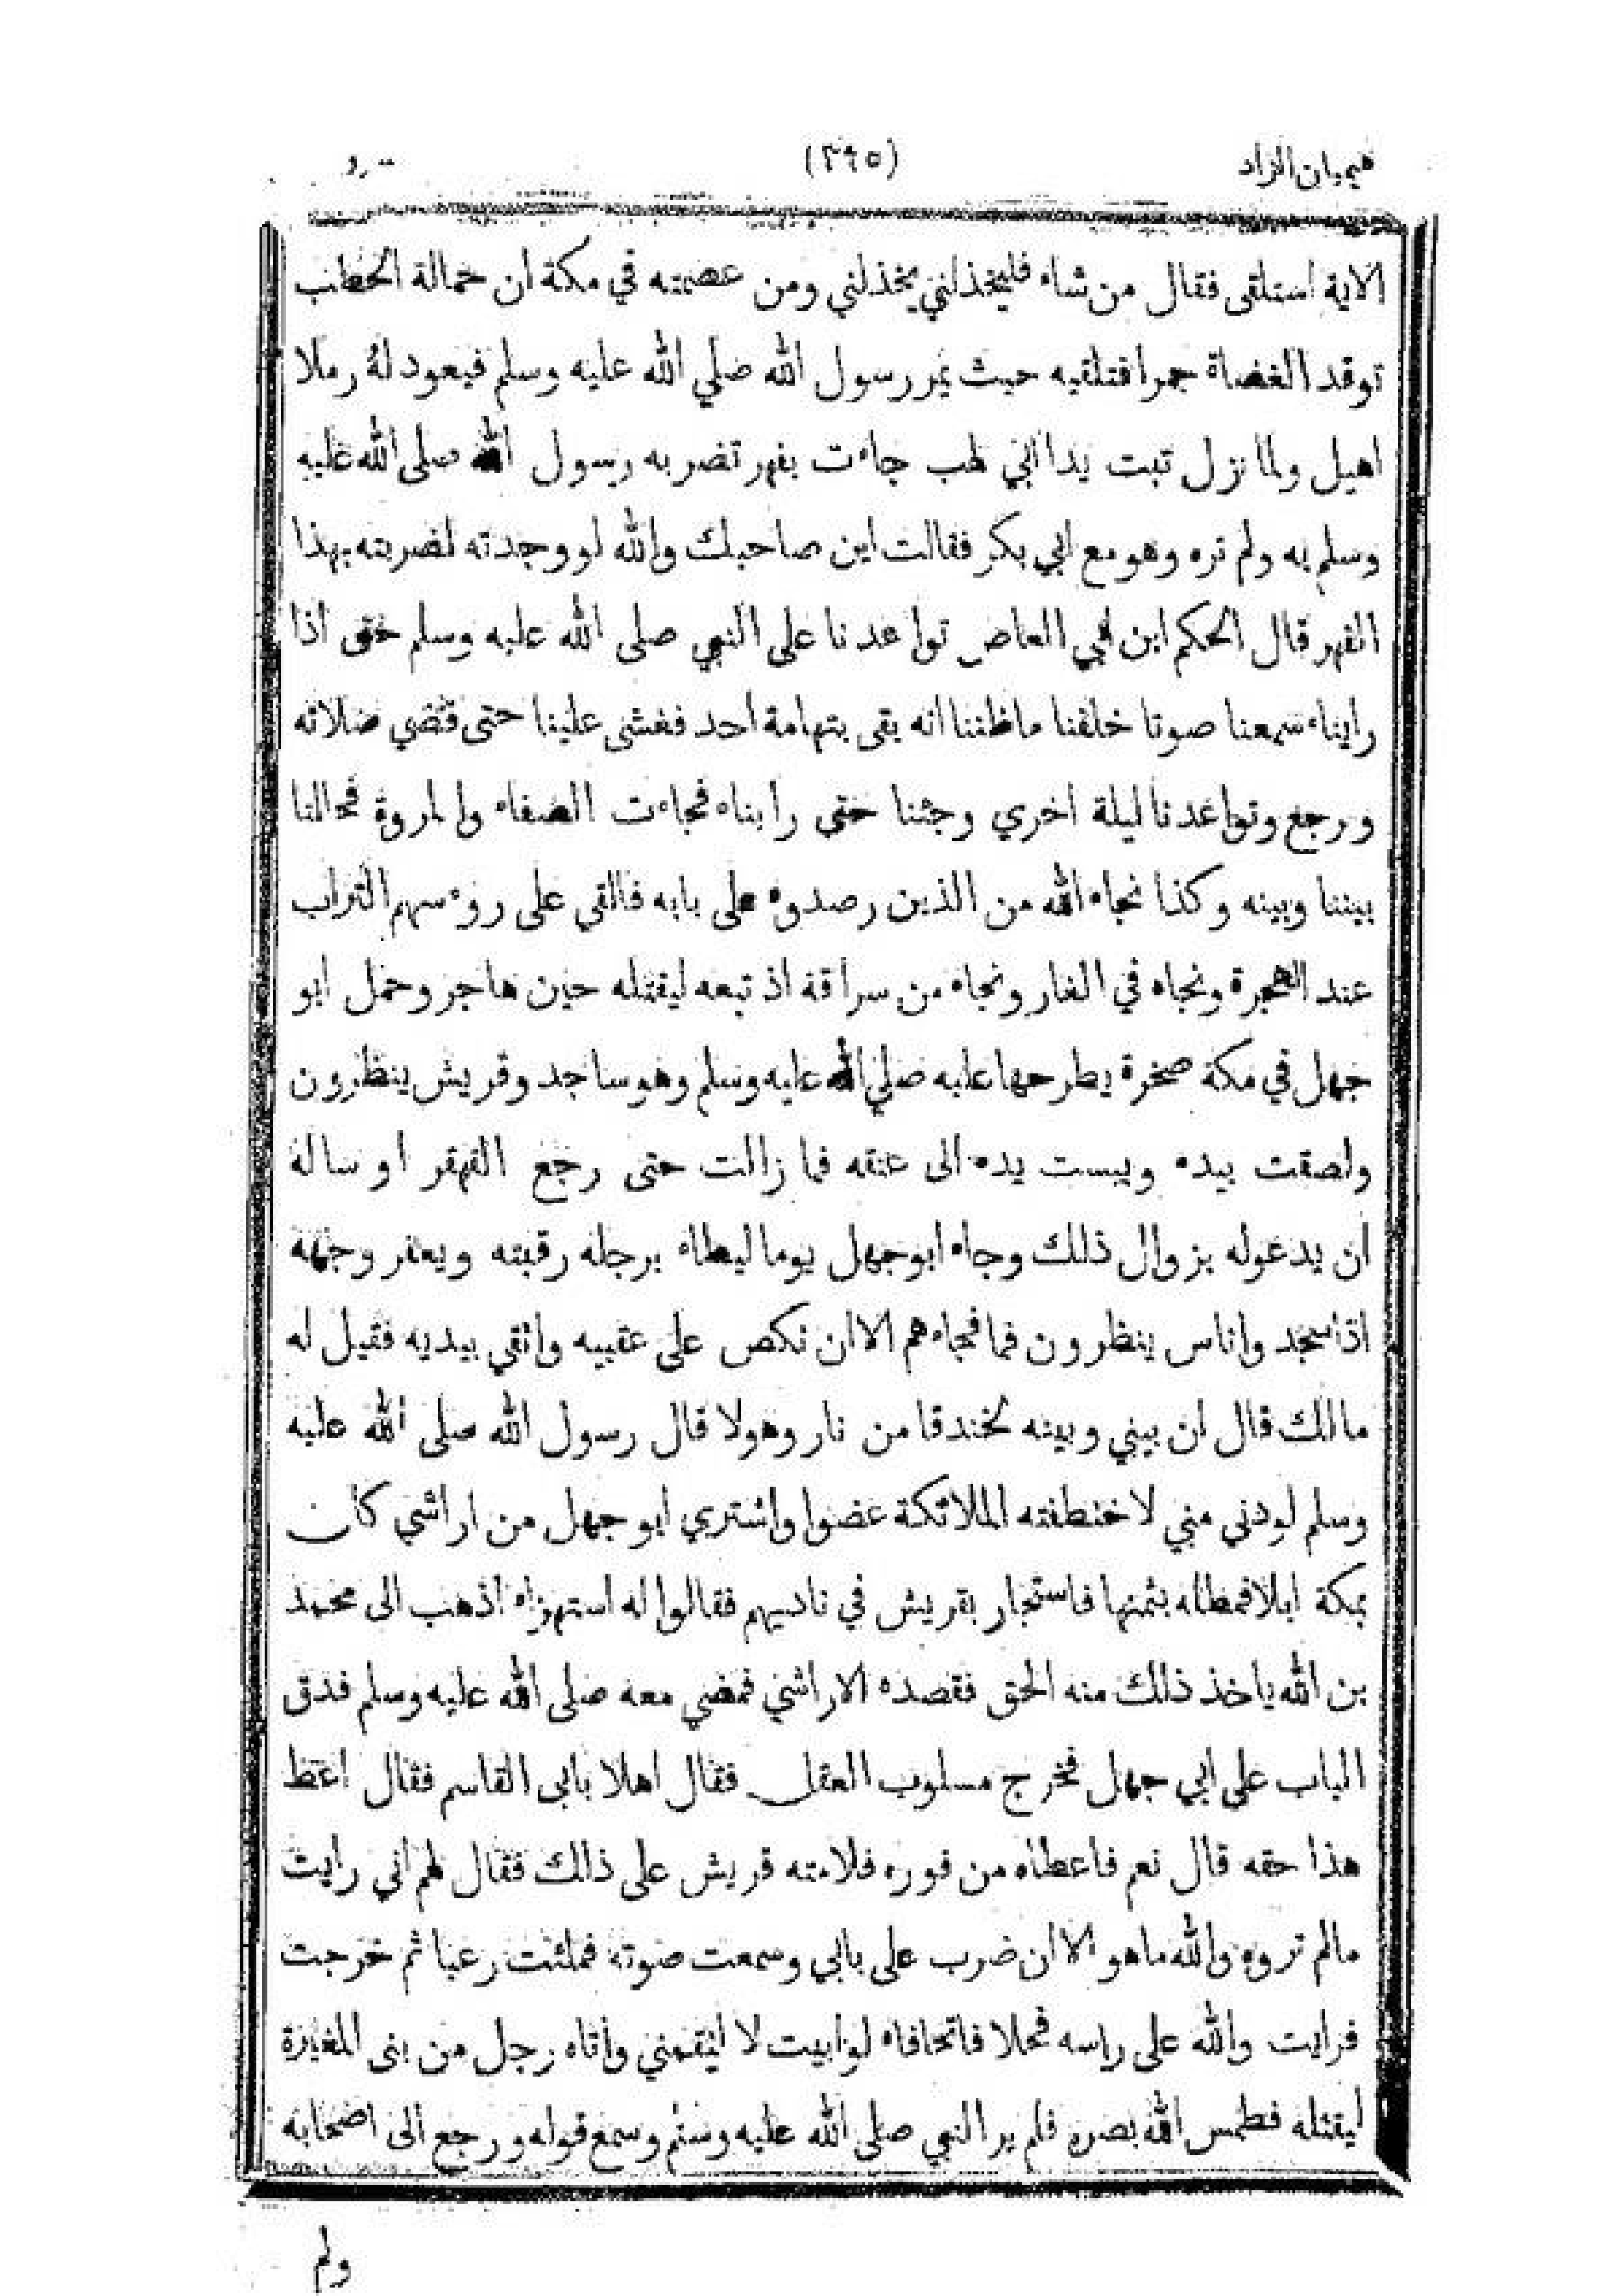 هيميان الزاد (٣٩٥)
الاية استلقى فقال من شاء فليخذلني يخذلني ومن عصمته في مكة ان حمالة الحطب
توقد الغضاة جمرا فتلقيه حيث يمر رسول الله صلي الله عليه وسلم فيعود له رملا
اهيل ولما نزل تبت يدا ابي لهب جاءت بفهر تضربه رسول الله صلى الله عليه
وسلم به ولم تره وهو مع ابي بكر فقالت اين صاحبك والله لو وجدته لضربته بهذا
الفهر قال الحكم ابن ابي العاص تواعدنا على النبي صلى الله عليه وسلم حتى اذا
رايناه سمعنا صوتا خلفنا ما ظننا انه بقى بتهامة احد فغشى علينا حتى قضي صلاته
ورجع وتواعدنا ليلة اخري وجئنا حتى رايناه فجاءت الصفاء والمروة فحالنا
بيننا وبينه وكذا نجاه الله من الذين رصدوه على بابه فالقي على رءوسهم التراب
عند الهجرة ونجاه في الغار ونجاه من سراقة اذ تبعه ليقتله حين هاجر وحمل ابو
جهل في مكة صخرة يطرحها عليه صلي الله عليه وسلم وهو ساجد وقريش ينظرون
ولصقت بيده ويبست يده الى عنقه فما زالت حتى رجع القهقر او ساله
ان يدعو له بزوال ذلك وجاء ابو جهل يوما ليطاء برجله رقبته ويعفر وجهه
اذا سجد واناس ينظرون فما فجاءهم الا ان نكص على عقبيه واتقي بيديه فقيل له
مالك قال ان بيني وبينه لخندقا من نار وهولا قال رسول الله صلى الله عليه
وسلم لو دنى مني لاختطفته الملائكة عضوا واشتري ابو جهل من اراشي كان
بمكة ابلا فمطله بثمنها فاستجار بقريش في ناديهم فقالوا له استهزاء اذهب الى محمد
بن الله ياخذ ذلك منه الحق فقصده الاراشي فمضي معه صلى الله عليه وسلم فدق
الباب على ابي جهل فخرج مسلوب العقل فقال اهلا بابى القاسم فقال اعط
هذا حقه قال نعم فاعطاه من فوره فلامته قريش على ذلك فقال لهم اني رايت
مالم تروه والله ما هو الا ان ضرب على بابي وسمعت صوته فملئت رعبا ثم خرجت
فرايت والله على راسه فحلا فاتحا فاه لو ابيت لا ليقمني واتاه رجل من بنى المغيرة
ليقتله فطمس الله بصره فلم ير النبي صلى الله عليه وسلم وسمع قوله ورجع الى اصحابه
ولم